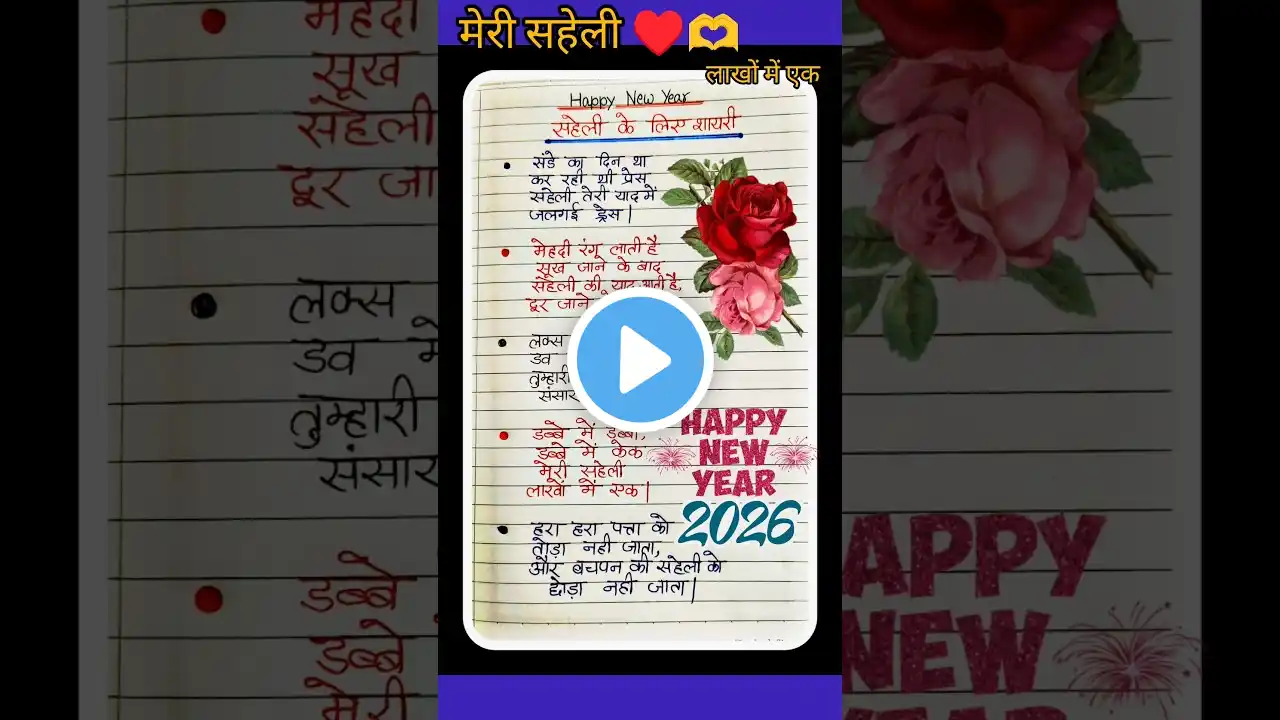 मेरी सहेली ❤️🫶
लाखों में एक
Happy New Year
सहेली के लिए शायरी
संडे का दिन था
कर रही थी प्रेस
सहेली तेरी याद में
जलगई ड्रेस।
मेहदी रंगू लाती है
सूख जाने के बाद
सहेली की याद आती है,
दूर जाने
लक्स
डव
तुम्हारी
संसार
डब्बे में डूब्बा,
डब्बे में केक
मेरी सहेली
लाखों में एक।
हरा हरा पत्ता को
तोड़ा नही जाता,
और बचपन की सहेली को
छोड़ा नही जाता।
HAPPY
NEW
YEAR
2026
मेहदी
सूख
सहेली
दूर जा
लक्स
डव मे
तुम्हारी
संसार
डब्बे
डब्बे
मेरी
HAPPY
NEW
YEAR